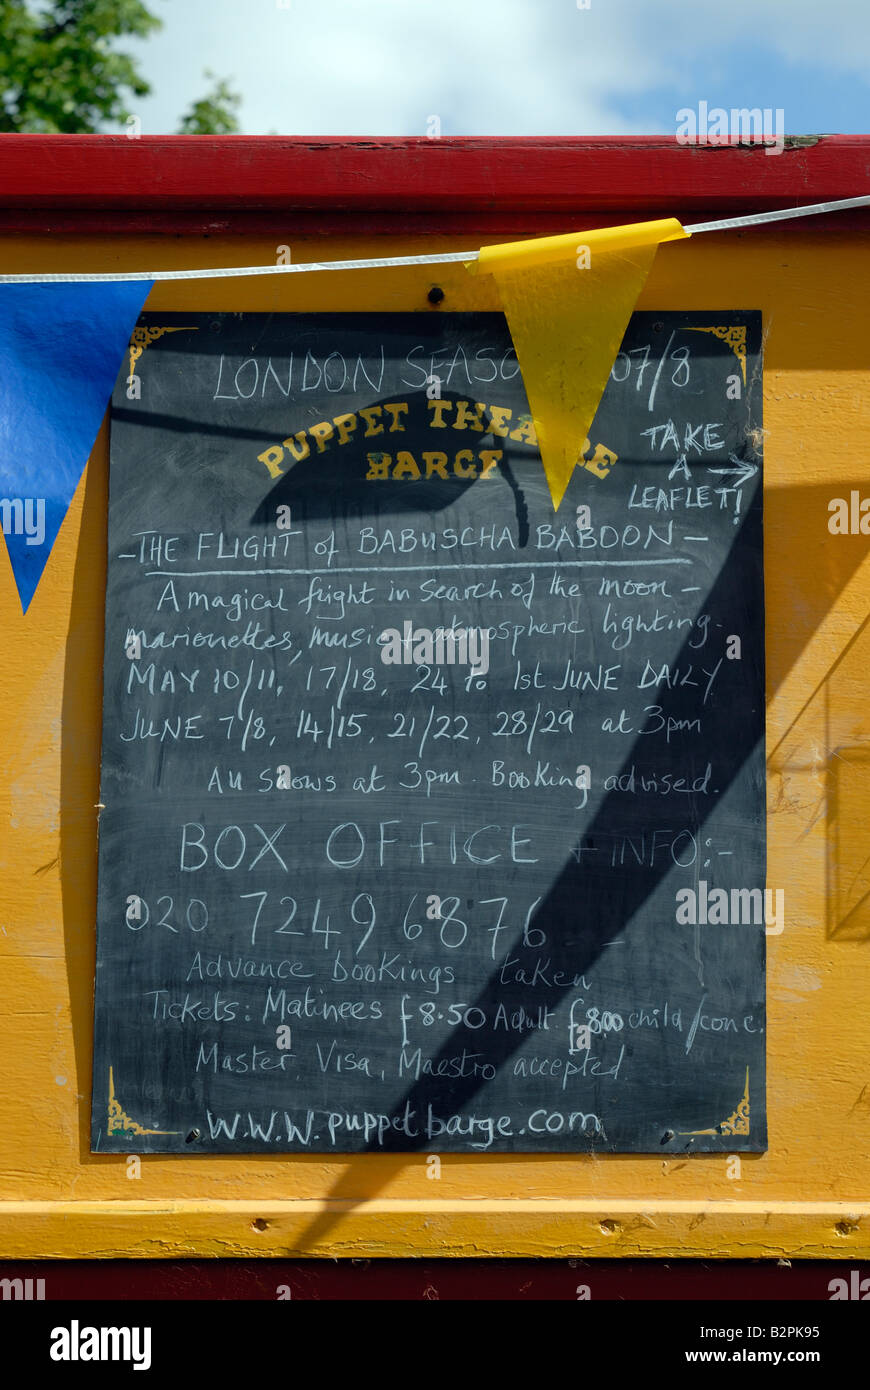 LONDON SEASO 07/8
PUPPET THEA RE
BARGE
TAKE
A
LEAFLET!
- THE FLIGHT of BABUSCHA BABOON -
A magical flight in search of the moon -
marionettes, music + atmospheric lighting.
MAY 10/11, 17/18, 24 to 1st JUNE DAILY
JUNE 7/8, 14/15, 21/22, 28/29 at 3pm
All shows at 3pm. Booking advised.
BOX OFFICE + INFO:-
020 7249 6876 - -
Advance bookings taken
Tickets: Matinees £8.50 Adult £8.00 child/conc.
Master, Visa, Maestro accepted.
www.puppetbarge.com
alamy
Image ID: B2PK95
www.alamy.com